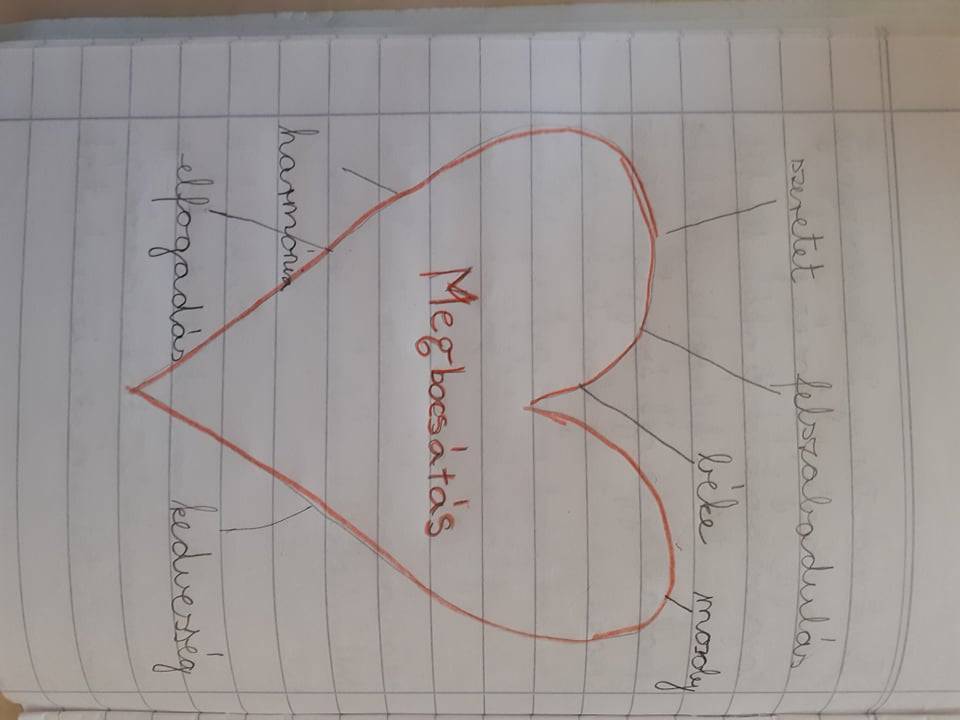 szeretet felszabadulás
béke mosoly
Megbocsátás
harmónia
elfogadás kedvesség